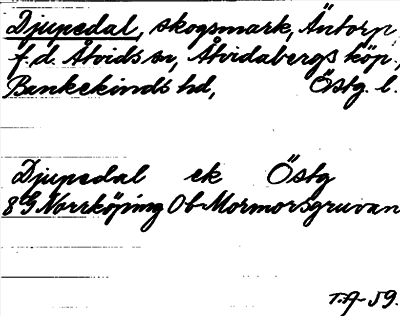 Djupedal, skogsmark, Äntorp,
f.d. Åtvids sn, Åtvidabergs köp.,
Bankekinds hd, Östg. l.
Djupedal ek Östg
8G Norrköping 0b Mormorsgruvan
T.A 59.